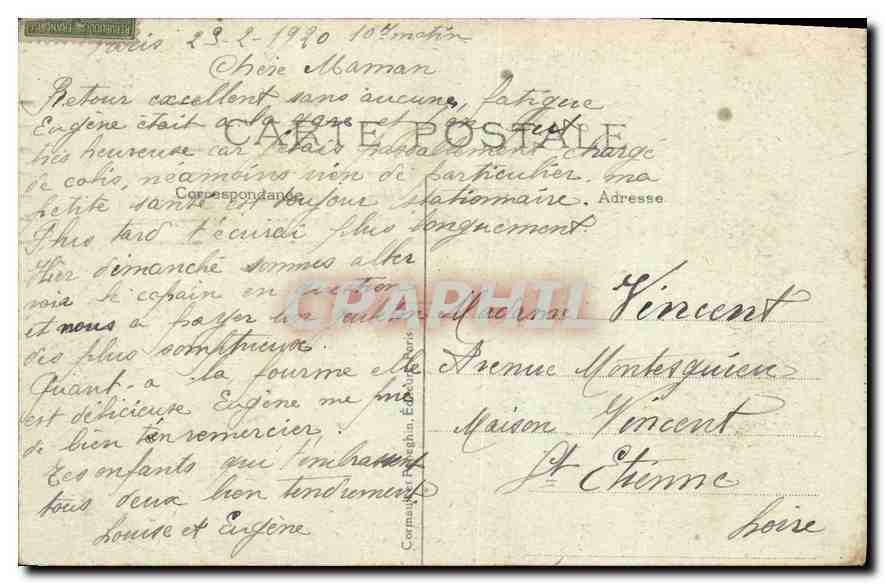 REPUBLIQUE FRANCAISE
Paris 23-2-1920 10h matin
Chère Maman
Retour excellent sans aucune, fatigue
Eugène était a la gare et j'en fut
CARTE POSTALE
très heureuse car j'étais passablement chargé
de colis, neamoins rien de particulier. ma
Correspondance
Adresse
petite santé est toujour stationnaire.
Plus tard t'écrirai plus longuement.
Hier dimanche sommes aller
voir le copain en
et nous a payer un
des plus somptueux.
Quant-a la fourme elle
est délicieuse Eugène me prie
de bien t'en remercier.
Tes enfants qui t'embrassent
tous deux bien tendrement
Louise et Eugène
CPAPHIL
Cormault et Papeghin, Éditeurs, Paris
Madame Vincent
Avenue Montesquieu
Maison Vincent
St Etienne
Loire